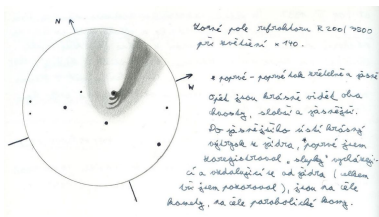 N
W
Zorné pole refraktoru R 200/3300
při zvětšení × 140.
* poprvé - poprvé tak zřetelně a jasně
Opět jsou krásně vidět oba
chvosty, slabší a jasnější.
Do jasnějšího ústí krásný
výtrysk z jádra, *poprvé jsem
zaregistroval „slupky" vycházejí-
cí a vzdalující se od jádra (celkem
tři jsem pozoroval), jsou na čele
komety, na čele parabolické komy.